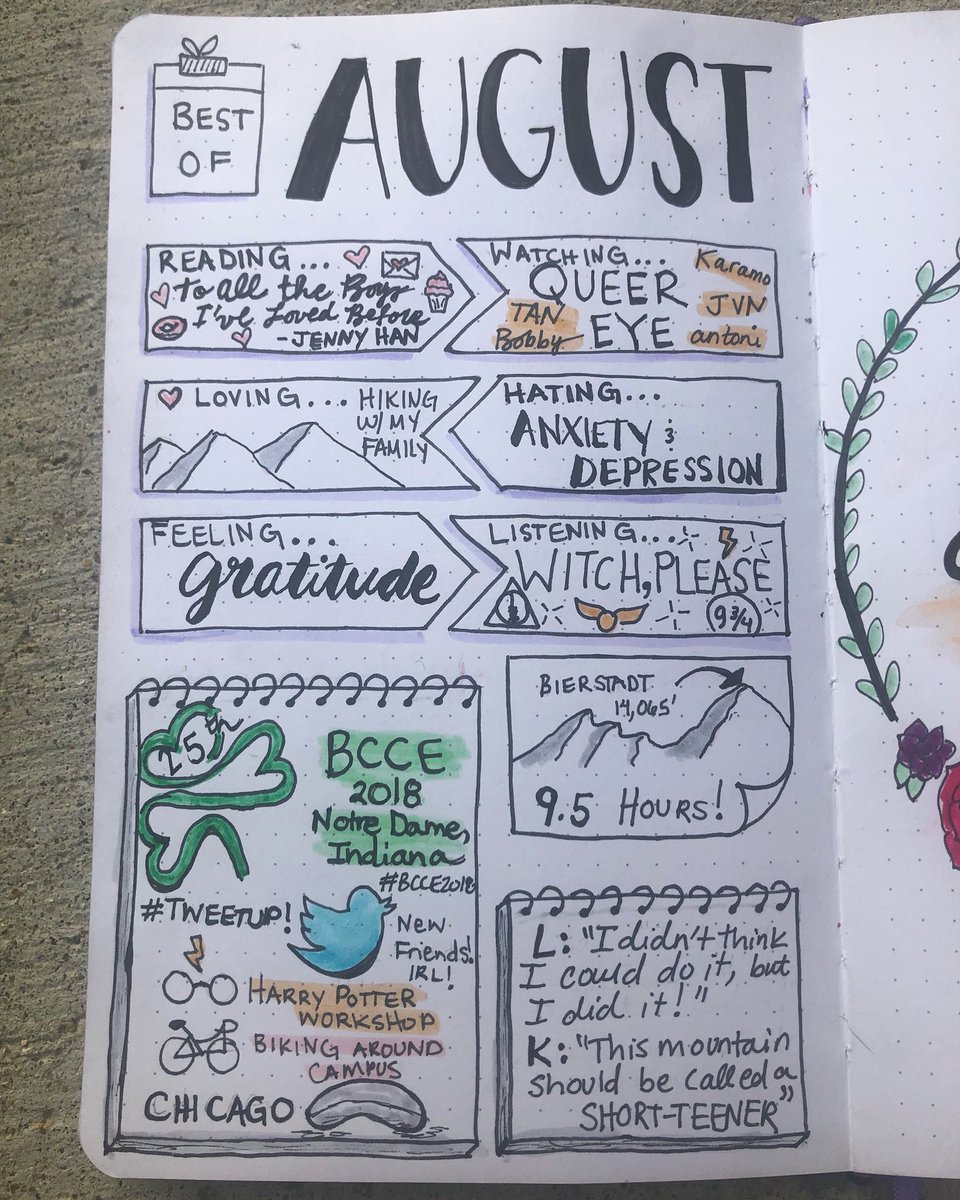 BEST
OF
AUGUST
READING...
to all the Boys
I've Loved Before
-JENNY HAN
WATCHING...
QUEER
EYE
TAN
Bobby
Karamo
JVN
antoni
LOVING...
HIKING
W/ MY
FAMILY
HATING...
ANXIETY &
DEPRESSION
FEELING...
gratitude
LISTENING...
WITCH, PLEASE
9 3/4
25th
BCCE
2018
Notre Dame,
Indiana
#BCCE2018
#TWEETUP!
New
Friends!
IRL!
HARRY POTTER
WORKSHOP
BIKING AROUND
CAMPUS
CHICAGO
BIERSTADT
14,065'
9.5 HOURS!
L: "I didn't think
I could do it, but
I did it!"
K: "This mountain
should be called a
SHORT-TEENER"